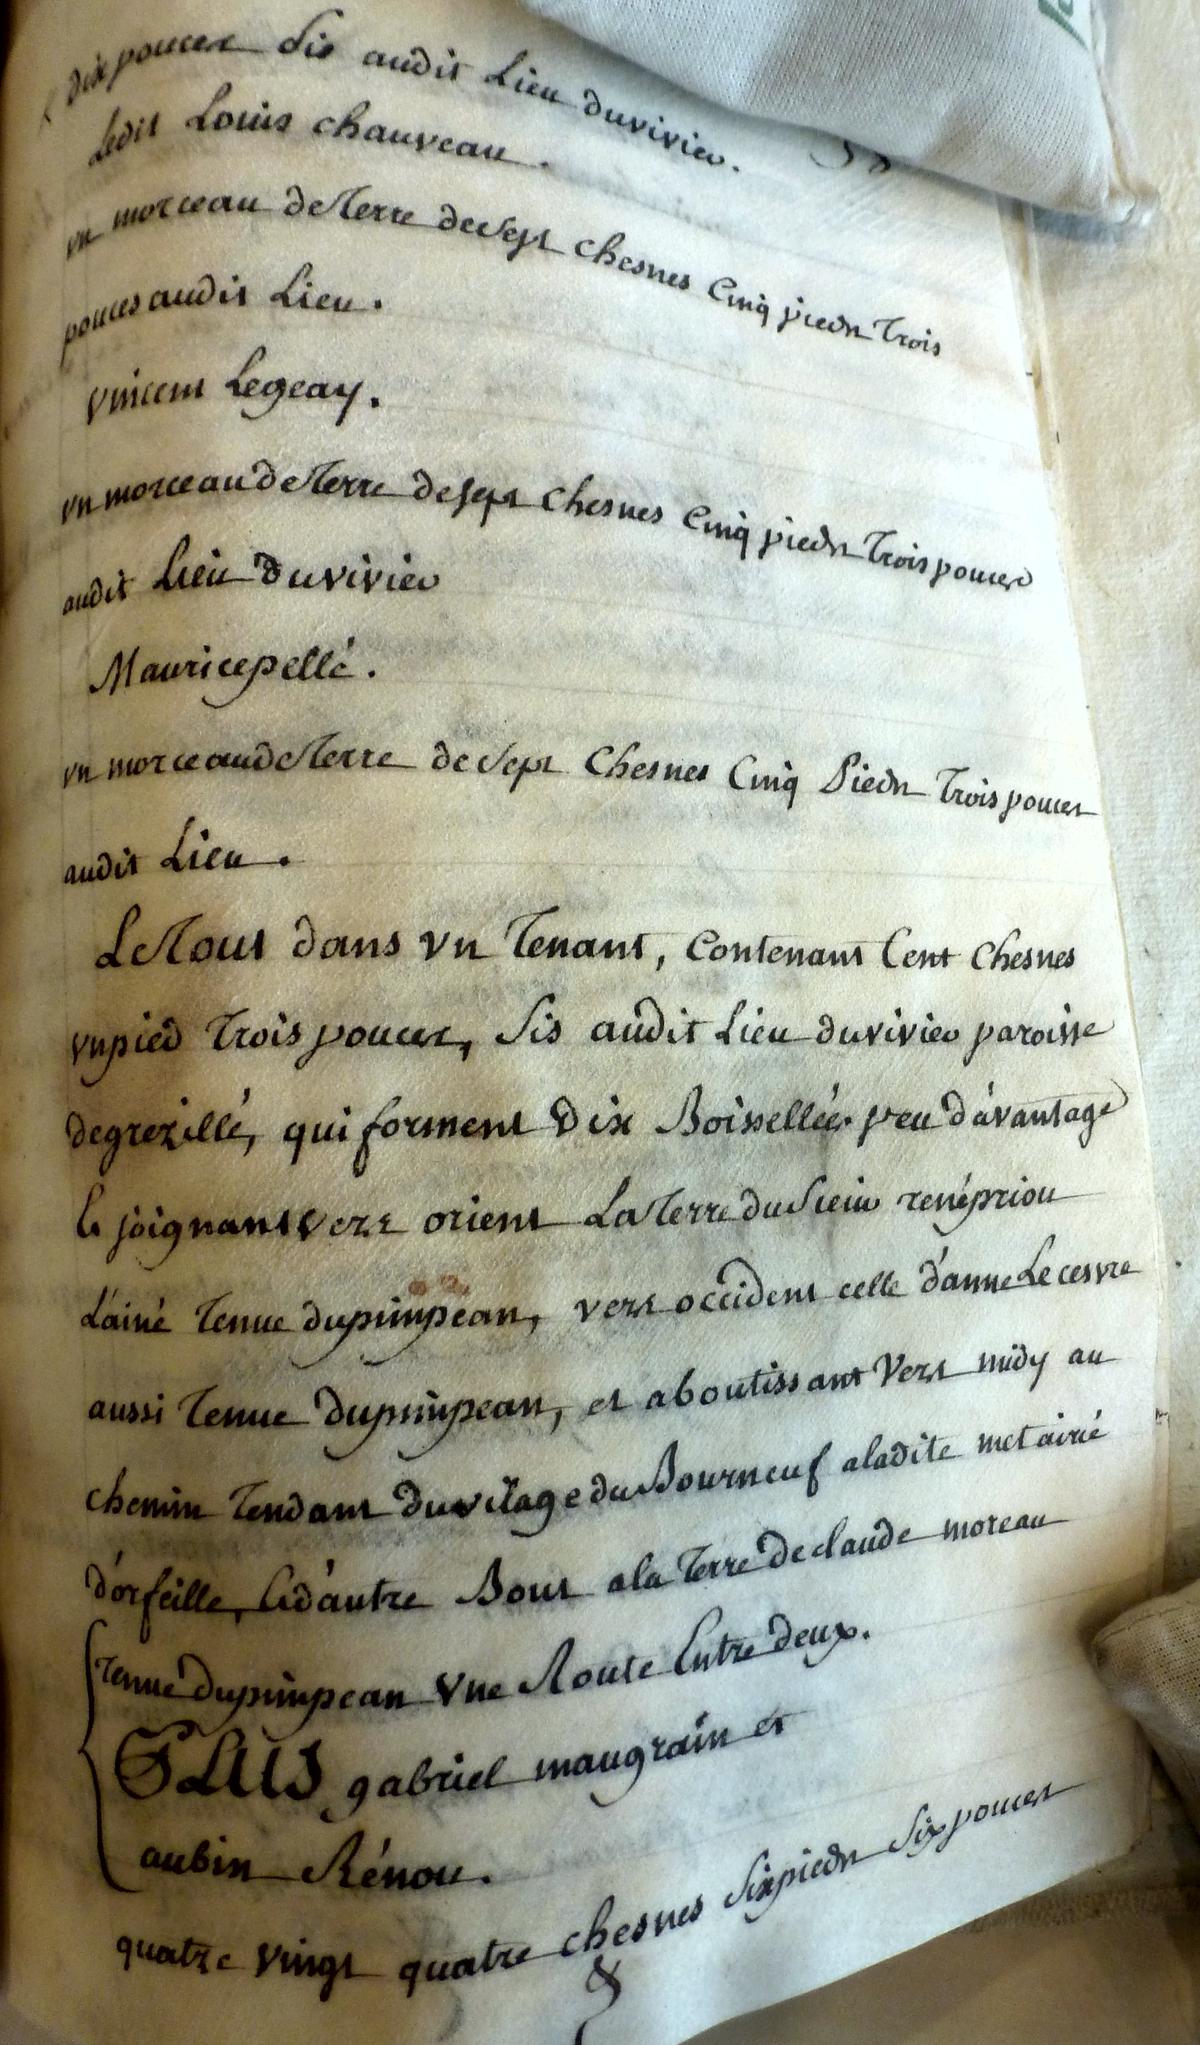 dix pouces Sis audit Lieu duvivier.
Ledit Louis chauveau.
un morceau deTerre deSept chesnes Cinq pieds Trois
pouces audit Lieu.
Vincent Legeay.
un morceau deTerre desept chesnes Cinq pieds Trois pouces
audit Lieu Duvivier
Maurice pellé.
un morceau deTerre deSept Chesnes Cinq Pieds Trois pouces
audit Lieu.
LeTout dans un Tenant, Contenant Cent chesnes
un pied Trois pouces, Sis audit Lieu duvivier paroisse
degrezillé, qui forment Dix Boissellées peu d'avantage
joignant vers orient LaTerre duSieur renépriou
L'ainé Tenue dupimpean, vers occident celle d'anne Lecesvre
aussi Tenue dupimpean, et aboutissant Vers midy au
chemin Tendant du vilage du Bourneuf aladite metairié
d'orfeille, et d'autre Bout ala Terre de claude moreau
tenue dupimpean Une Route Entre deux.
PLUS gabriel maugrain et
aubin Rénou.
quatre vingt quatre chesnes Six pieds Six pouces